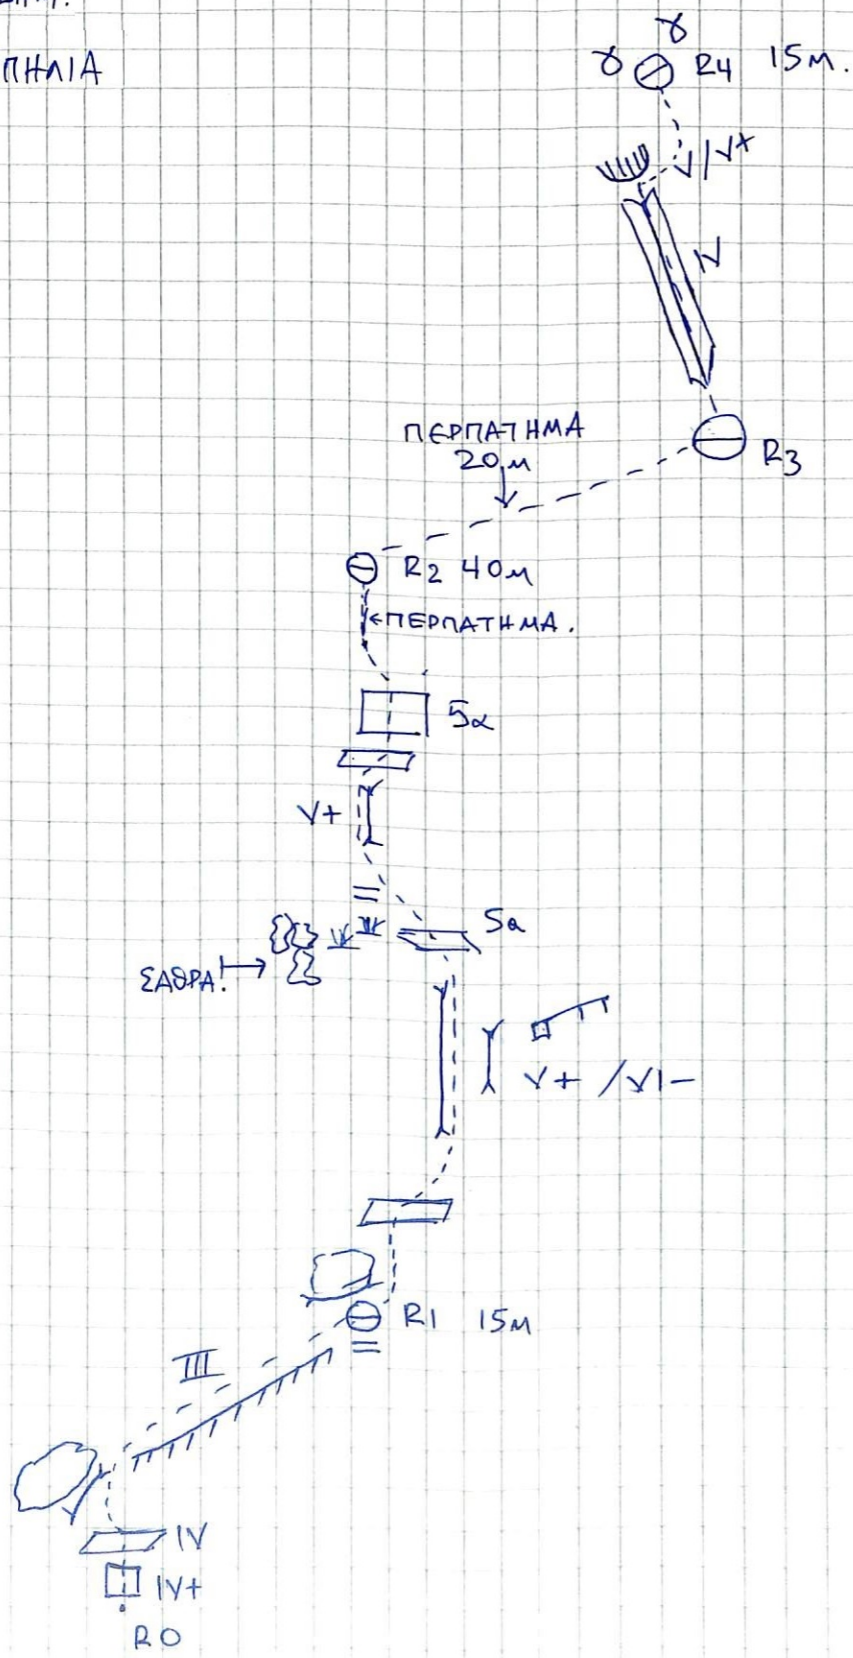 ΠΗΛΙΑ
R4 15м.
V/V+
IV
ΠΕΡΠΑΤΗΜΑ
20м
R3
R2 40м
ΠΕΡΠΑΤΗΜΑ.
5α
V+
5α
ΣΑΘΡΑ!
V+ /VI-
R1 15м
III
IV
IV+
R0